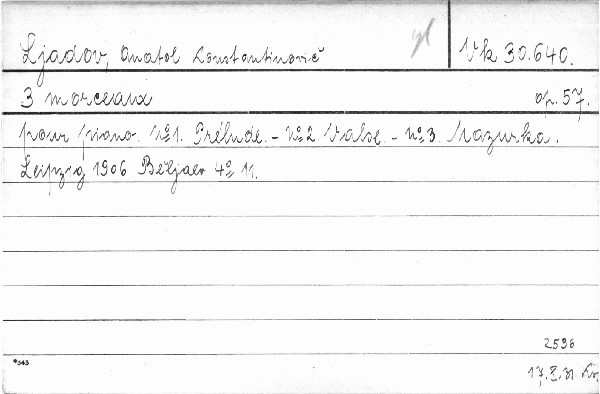 Ljadov, Anatol Constantinovič Vk 30.640.
3 morceaux op. 57.
pour piano. No 1. Prélude. - No 2 Valse. - No 3. Mazurka.
Leipzig 1906 Beljaev 4o 11.
2596
*343
17. X. 31.